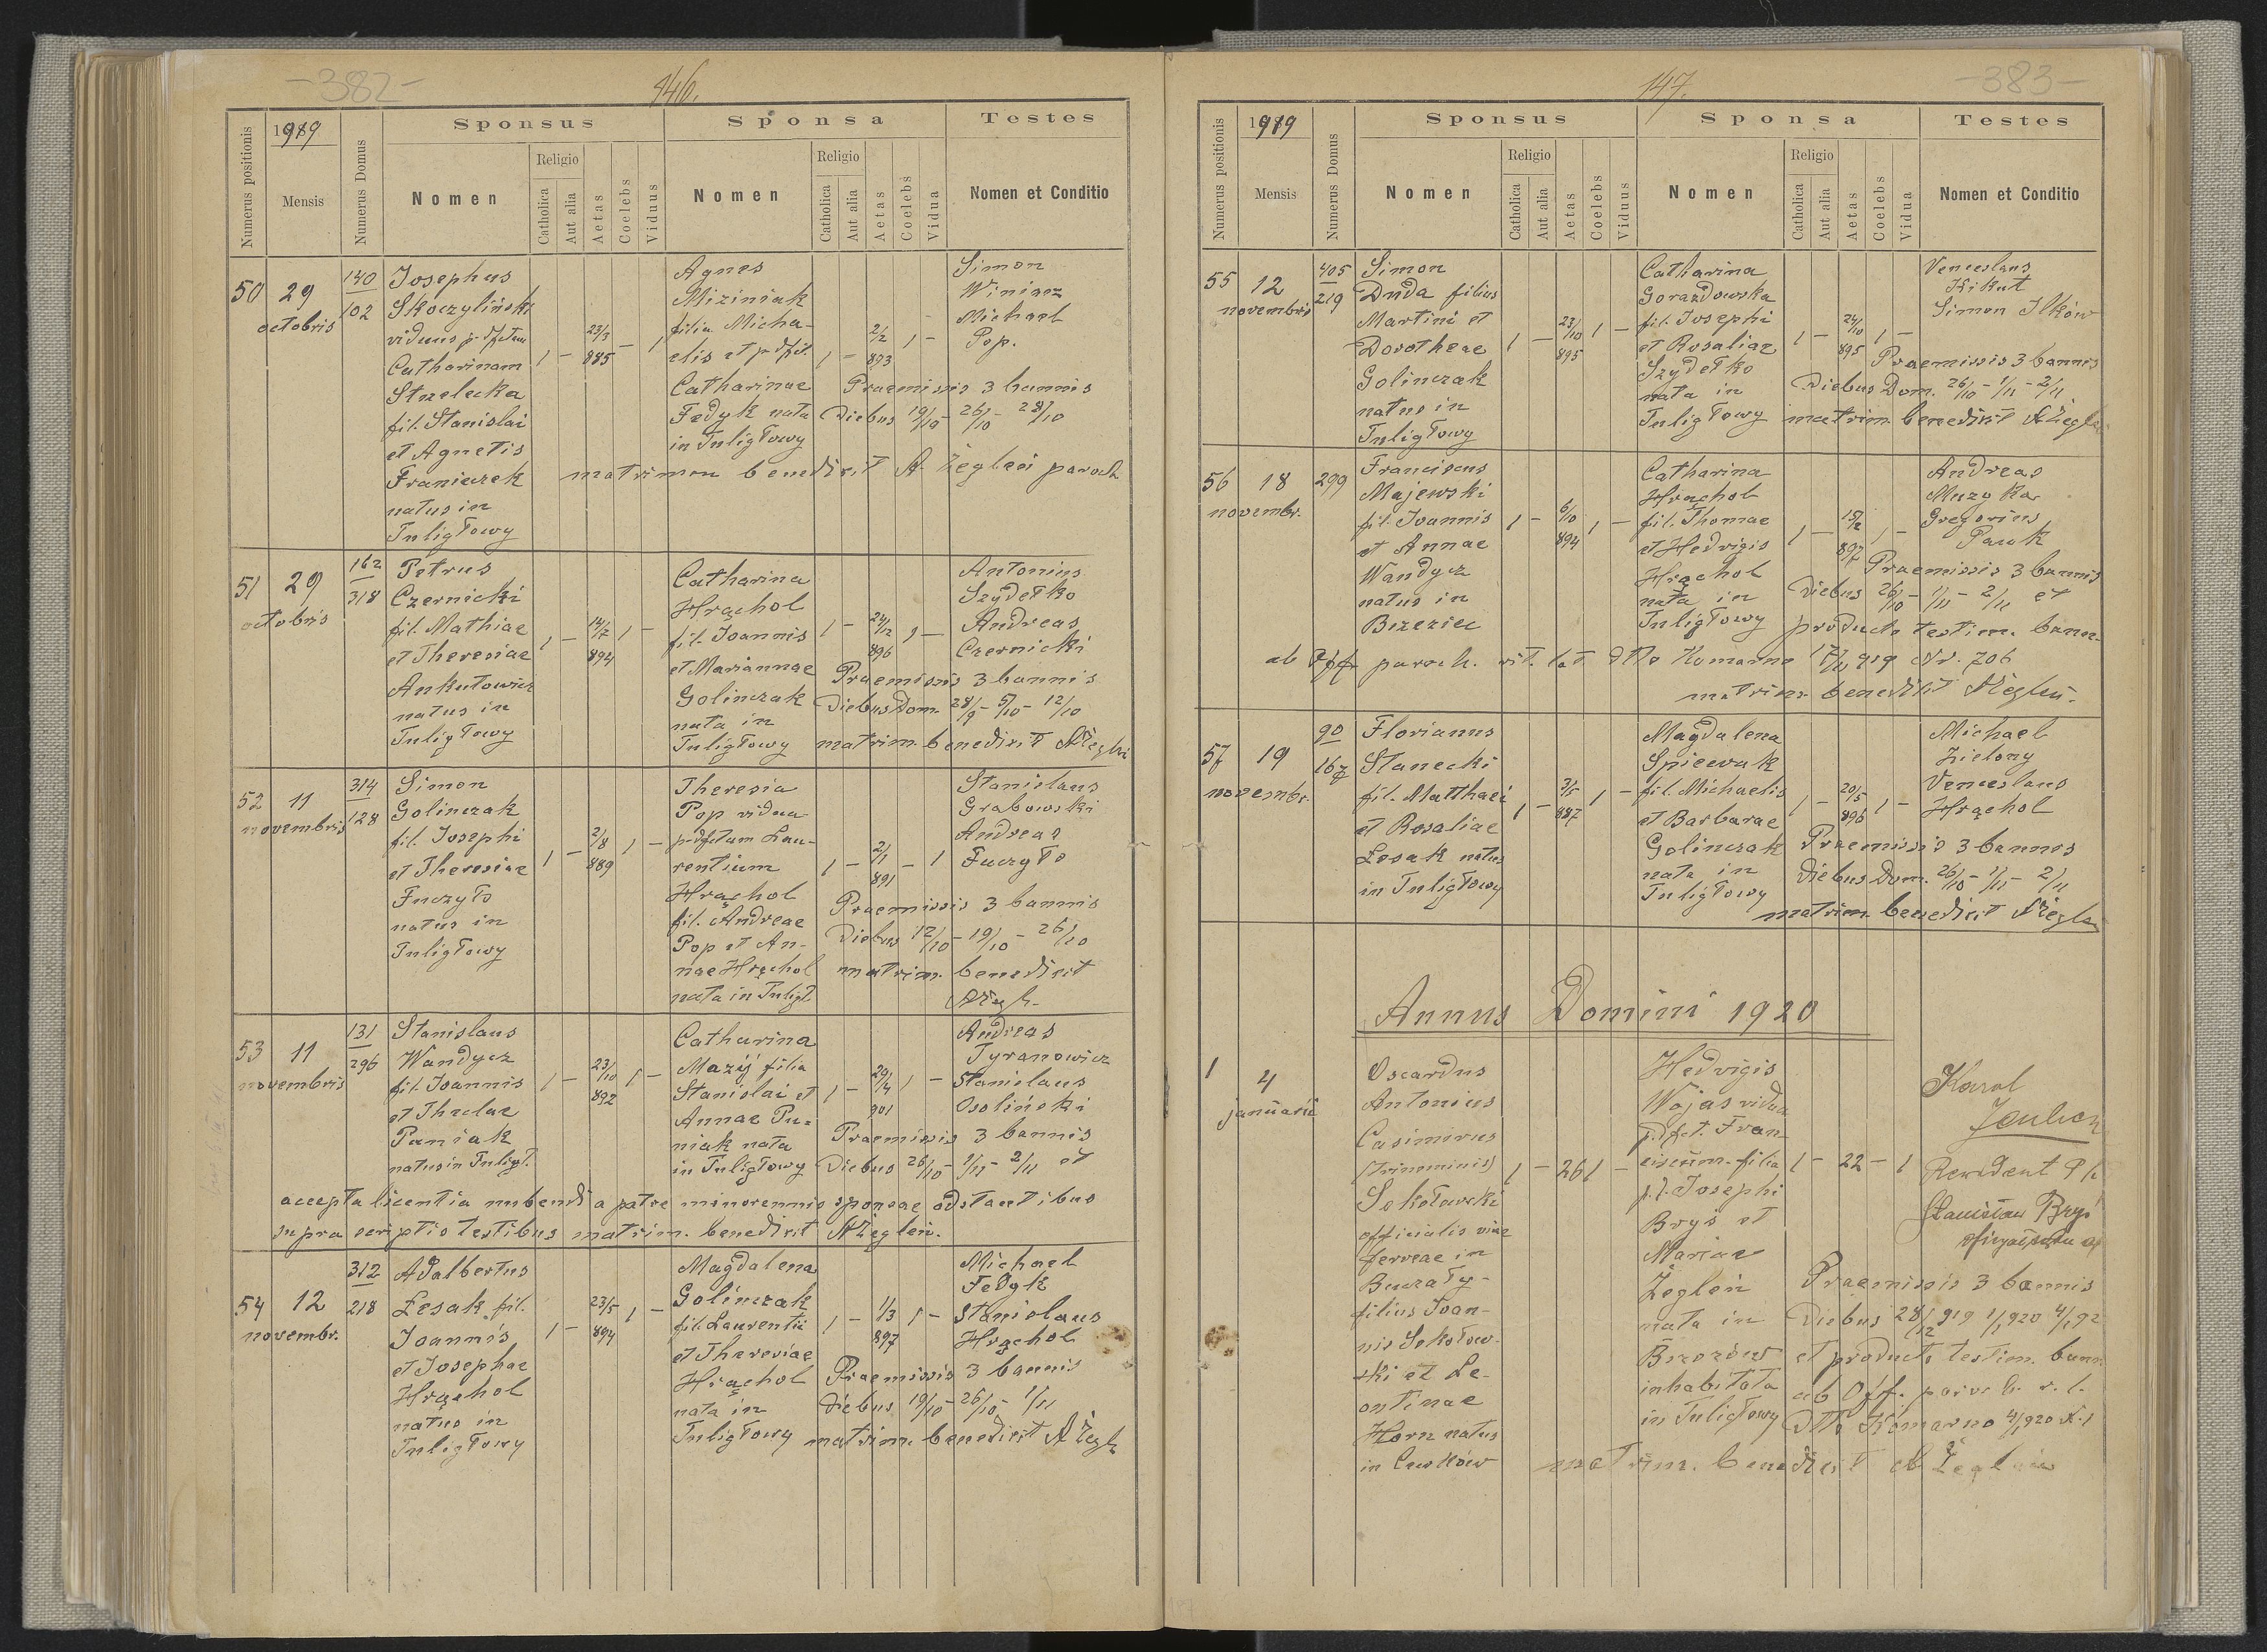 -382-
146.
1919
Numerus positionis
Mensis
Numerus Domus
Sponsus
Sponsa
Testes
Nomen
Religio
Catholica
Aut alia
Aetas
Coelebs
Viduus
Nomen
Religio
Catholica
Aut alia
Aetas
Coelebs
Vidua
Nomen et Conditio
50 29 octobris
140
102
Josephus
Skoczyliński
viduus p. dftam
Catharinam
Strelecka
fil. Stanislai
et Agnetis
Franiczek
natus in
Tuligłowy
1 - 23/3 885 - 1
Agnes
Miziniak
filia Micha-
elis et p. dft.
Catharinae
Fedyk nata
in Tuligłowy
1 - 2/2 893 1 -
Simon
Winiarz
Michael
Pop.
Praemissis 3 bannis
Diebus 19/10 - 26/10 - 28/10
matrimon benedixit A. Żegleń paroch
51 29 octobris
162
318
Petrus
Czernicki
fil. Mathiae
et Theresiae
Ankutowicz
natus in
Tuligłowy
1 - 14/7 894 1 -
Catharina
Hrąchol
fil. Joannis
et Mariannae
Golinczak
nata in
Tuligłowy
1 - 24/12 896 1 -
Antonius
Szydełko
Andreas
Czernicki
Praemissis 3 bannis
Diebus Dom. 28/9 - 5/10 - 12/10
matrim. benedixit AŻegleń
52 11 novembris
314
128
Simon
Golinczak
fil. Josephi
et Theresiae
Fuczyło
natus in
Tuligłowy
1 - 2/8 889 1 -
Theresia
Pop vidua
p. dftum Lau-
rentium
Hrąchol
fil. Andreae
Pop et An-
nae Hrąchol
nata in Tuligł.
1 - 2/1 891 - 1
Stanislaus
Grabowski
Andreas
Fuczyło
Praemissis 3 bannis
Diebus 12/10 - 19/10 - 26/10
matrim. benedixit
AŻegl.
53 11 novembris
131
296
Stanislaus
Wandycz
fil. Joannis
et Theclae
Paniak
natus in Tuligł.
1 - 23/10 892 1 -
Catharina
Mazij filia
Stanislai et
Annae Pu-
niak nata
in Tuligłowy
1 - 29/4 901 1 -
Andreas
Tyranowicz
Stanislaus
Osoliński
Praemissis 3 bannis
Diebus 26/10 - 1/11 - 2/11 et
accepta licentia nubendi a patre minorennis sponsae adstantibus
supra scriptis testibus matrim. benedixit AŻegleń.
54 12 novembr.
312
218
Adalbertus
Lesak fil.
Joannis
et Josephae
Hrąchol
natus in
Tuligłowy
1 - 23/5 894 1 -
Magdalena
Golinczak
fil. Laurentii
et Theresiae
Hrąchol
nata in
Tuligłowy
1 - 1/3 897 1 -
Michael
Fedyk
Stanislaus
Hrąchol
Praemissis 3 bannis
Diebus 19/10 - 26/10 - 1/11
matrim. benedixit AŻegl
147.
-383-
1919
Numerus positionis
Mensis
Numerus Domus
Sponsus
Sponsa
Testes
Nomen
Religio
Catholica
Aut alia
Aetas
Coelebs
Viduus
Nomen
Religio
Catholica
Aut alia
Aetas
Coelebs
Vidua
Nomen et Conditio
55 12 novembris
405
219
Simon
Duda filius
Martini et
Dorotheae
Golinczak
natus in
Tuligłowy
1 - 23/10 895 1 -
Catharina
Gorazdowska
fil. Josephi
et Rosaliae
Szydełko
nata in
Tuligłowy
1 - 24/10 895 1 -
Venceslaus
Kikut
Simon Ilków
Praemissis 3 bannis
Diebus Dom. 26/10 - 1/11 - 2/11
matrim. benedixit AŻegleń
56 18 novembr.
299
Franciscus
Majewski
fil. Joannis
et Annae
Wandycz
natus in
Brzeziec
1 - 6/10 894 1 -
Catharina
Hrąchol
fil. Thomae
et Hedvigis
Hrąchol
nata in
Tuligłowy
1 - 15/2 897 1 -
Andreas
Muzyka
Gregorius
Pauk
Praemissis 3 bannis
Diebus 26/10 - 1/11 - 2/11 et
producto testim. bann.
ab Off. paroch. rit. lat. dtto Komarno 17/11 919 Nr. 706
matrim benedixit AŻegleń.
57 19 novembr.
90
167
Florianus
Stanecki
fil. Matthaei
et Rosaliae
Lesak natus
in Tuligłowy
1 - 3/5 887 1 -
Magdalena
Spiewak
fil. Michaelis
et Barbarae
Golinczak
nata in
Tuligłowy
1 - 20/5 896 1 -
Michael
Zielony
Venceslaus
Hrąchol
Praemissis 3 bannis
Diebus Dom. 26/10 - 1/11 - 2/11
matrim. benedixit AŻegleń
Annus Domini 1920
1 4 januarii
Oscardus
Antonius
Casimirus
(trinominis)
Sokołowski
officialis viae
ferreae in
Buczały
filius Joan-
nis Sokołow-
ski et Le-
ontinae
Horn natus
in
1 - 26 1 -
Hedvigis
Wojas vidua
p. dft. Fran-
ciscum filia
p. d. Josephi
Bryś et
Mariae
Żegleń
nata in
Brzozów
inhabitata
in Tuligłowy
1 - 22 - 1
Karol
Stanisław Bryś
Praemissis 3 bannis
Diebus 28/12 919 1/1 920 4/1 92
et producto testim. bann.
ab Off. paroch. r. l.
dtto Komarno 4/1 920
matrim. benedixit A. Żegleń